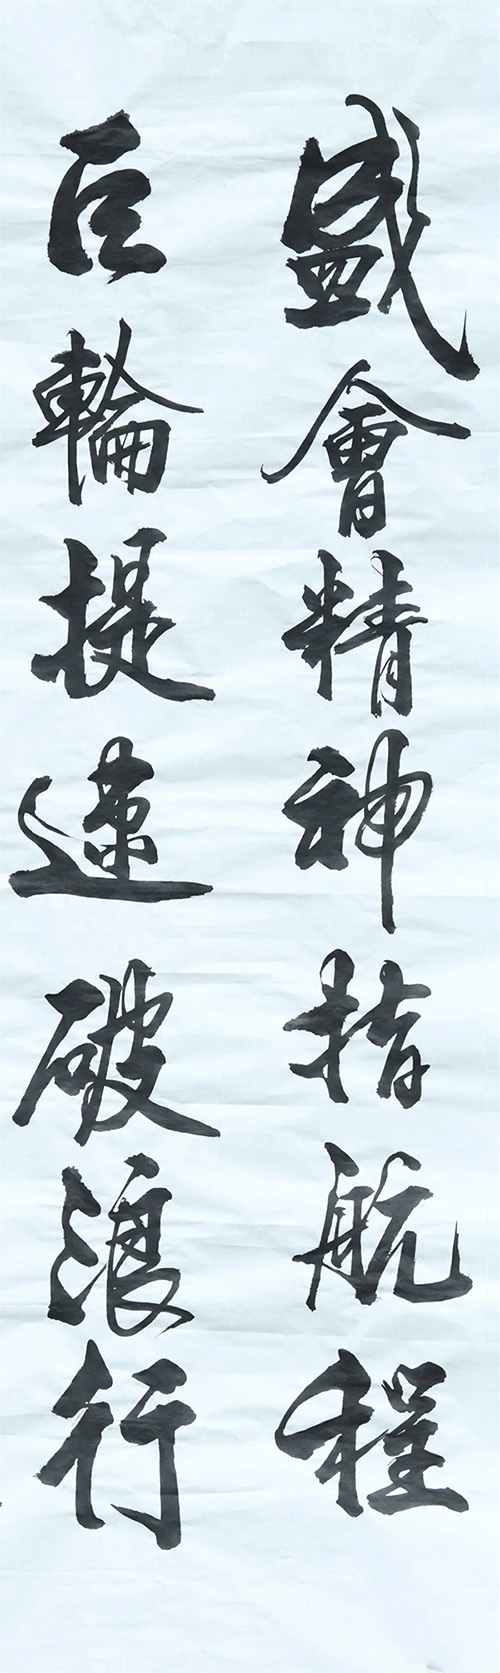 盛會精神指航程
巨輪提速破浪行